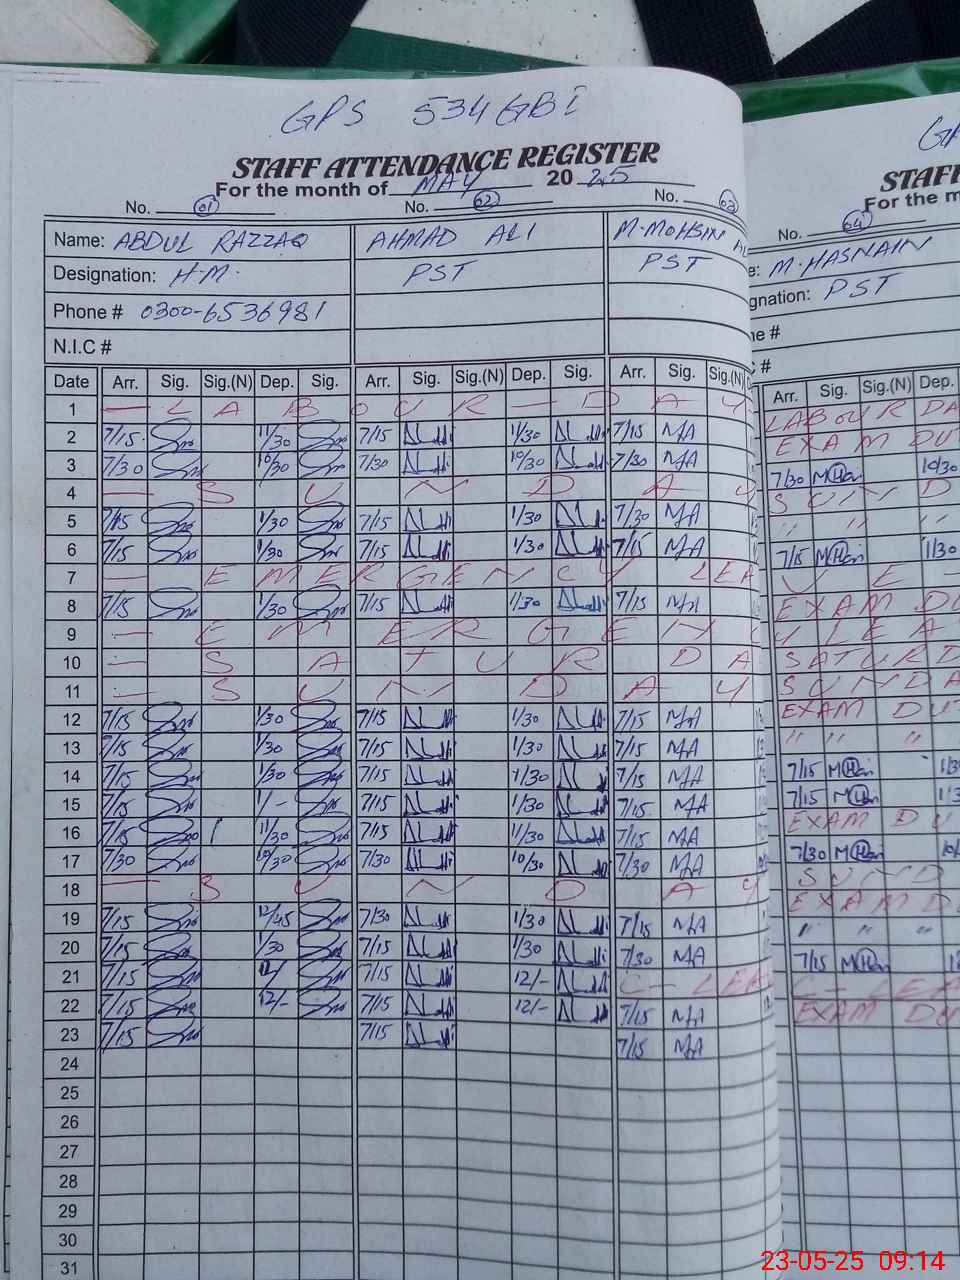 GPS 534 GBI
STAFF ATTENDANCE REGISTER
For the month of MAY 20 25
No. 01 No. 02 No. 03
Name: ABDUL RAZZAQ AHMAD ALI M. MOHSIN AL
Designation: H.M. PST PST
Phone # 0300-6536981
N.I.C #
Date Arr. Sig. Sig.(N) Dep. Sig. Arr. Sig. Sig.(N) Dep. Sig. Arr. Sig. Sig.(N)
1 — LABOUR — DAY
2 7/15 11/30 7/15 11/30 7/15 MA
3 7/30 10/30 7/30 10/30 7/30 MA
4 — SUNDAY
5 7/15 1/30 7/15 1/30 7/30 MA
6 7/15 1/30 7/15 1/30 7/15 MA
7 — EMERGENCY LEA
8 7/15 1/30 7/15 1/30 7/15 MA
9 — EMERGENC
10 — SATURDA
11 — SUNDAY
12 7/15 1/30 7/15 1/30 7/15 MA
13 7/15 1/30 7/15 1/30 7/15 MA
14 7/15 1/30 7/15 1/30 7/15 MA
15 7/15 1/- 7/15 1/30 7/15 MA
16 7/15 11/30 7/15 11/30 7/15 MA
17 7/30 10/30 7/30 10/30 7/30 MA
18 — SUNDAY
19 7/15 12/45 7/30 1/30 7/15 MA
20 7/15 1/30 7/15 1/30 7/30 MA
21 7/15 12/ 7/15 12/- C - LEA
22 7/15 12/- 7/15 12/- 7/15 MA
23 7/15 7/15 7/15 MA
24
25
26
27
28
29
30
31
STAF
For the m
No. 04
e: M. HASNAIN
gnation: PST
ne #
#
Arr. Sig. Sig.(N) Dep.
LABOUR DA
EXAM DUT
7/30 10/30
SUND
" " "
7/15 1/30
V E -
EXAM DU
Y LEA
SATURD
SUNDA
EXAM DUT
" " "
7/15 1/3
7/15 1/3
EXAM DU
7/30 10/
SUND
EXAM D
" " "
7/15
C - LEA
EXAM DU
23-05-25 09:14